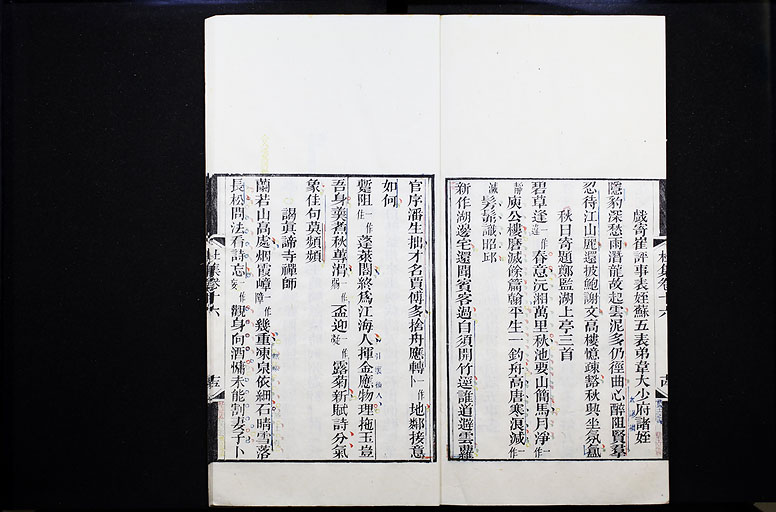 戲寄崔評事表姪蘇五表弟韋大少府諸姪
隱豹深愁雨潛龍故起雲泥多仍徑曲心醉阻賢羣
忍待江山麗還披鮑謝文高樓憶疎豁秋興坐氛氳
秋日寄題鄭監湖上亭三首
碧草逢一作違春意沅湘萬里秋池要山簡馬月淨一作
靜庾公樓磨滅餘篇翰平生一釣舟高唐寒浪減一作
滅髣髴識昭邱
新作湖邊宅還聞賓客過自須開竹逕誰道避雲蘿
杜集卷十六
官序潘生拙才名賈傅多捨舟應轉一作卜地鄰接意
如何
蹔阻一作住蓬萊閣終爲江海人揮金應物理拖玉豈
吾身羹煮秋蓴滑一作弱杯迎一作凝露菊新賦詩分氣
象佳句莫頻頻
謁真諦寺禪師
蘭若山高處烟霞嶂一作障幾重凍泉依細石晴雪落
長松問法看詩忘一作妄觀身向酒慵未能割妻子卜
杜集卷十六